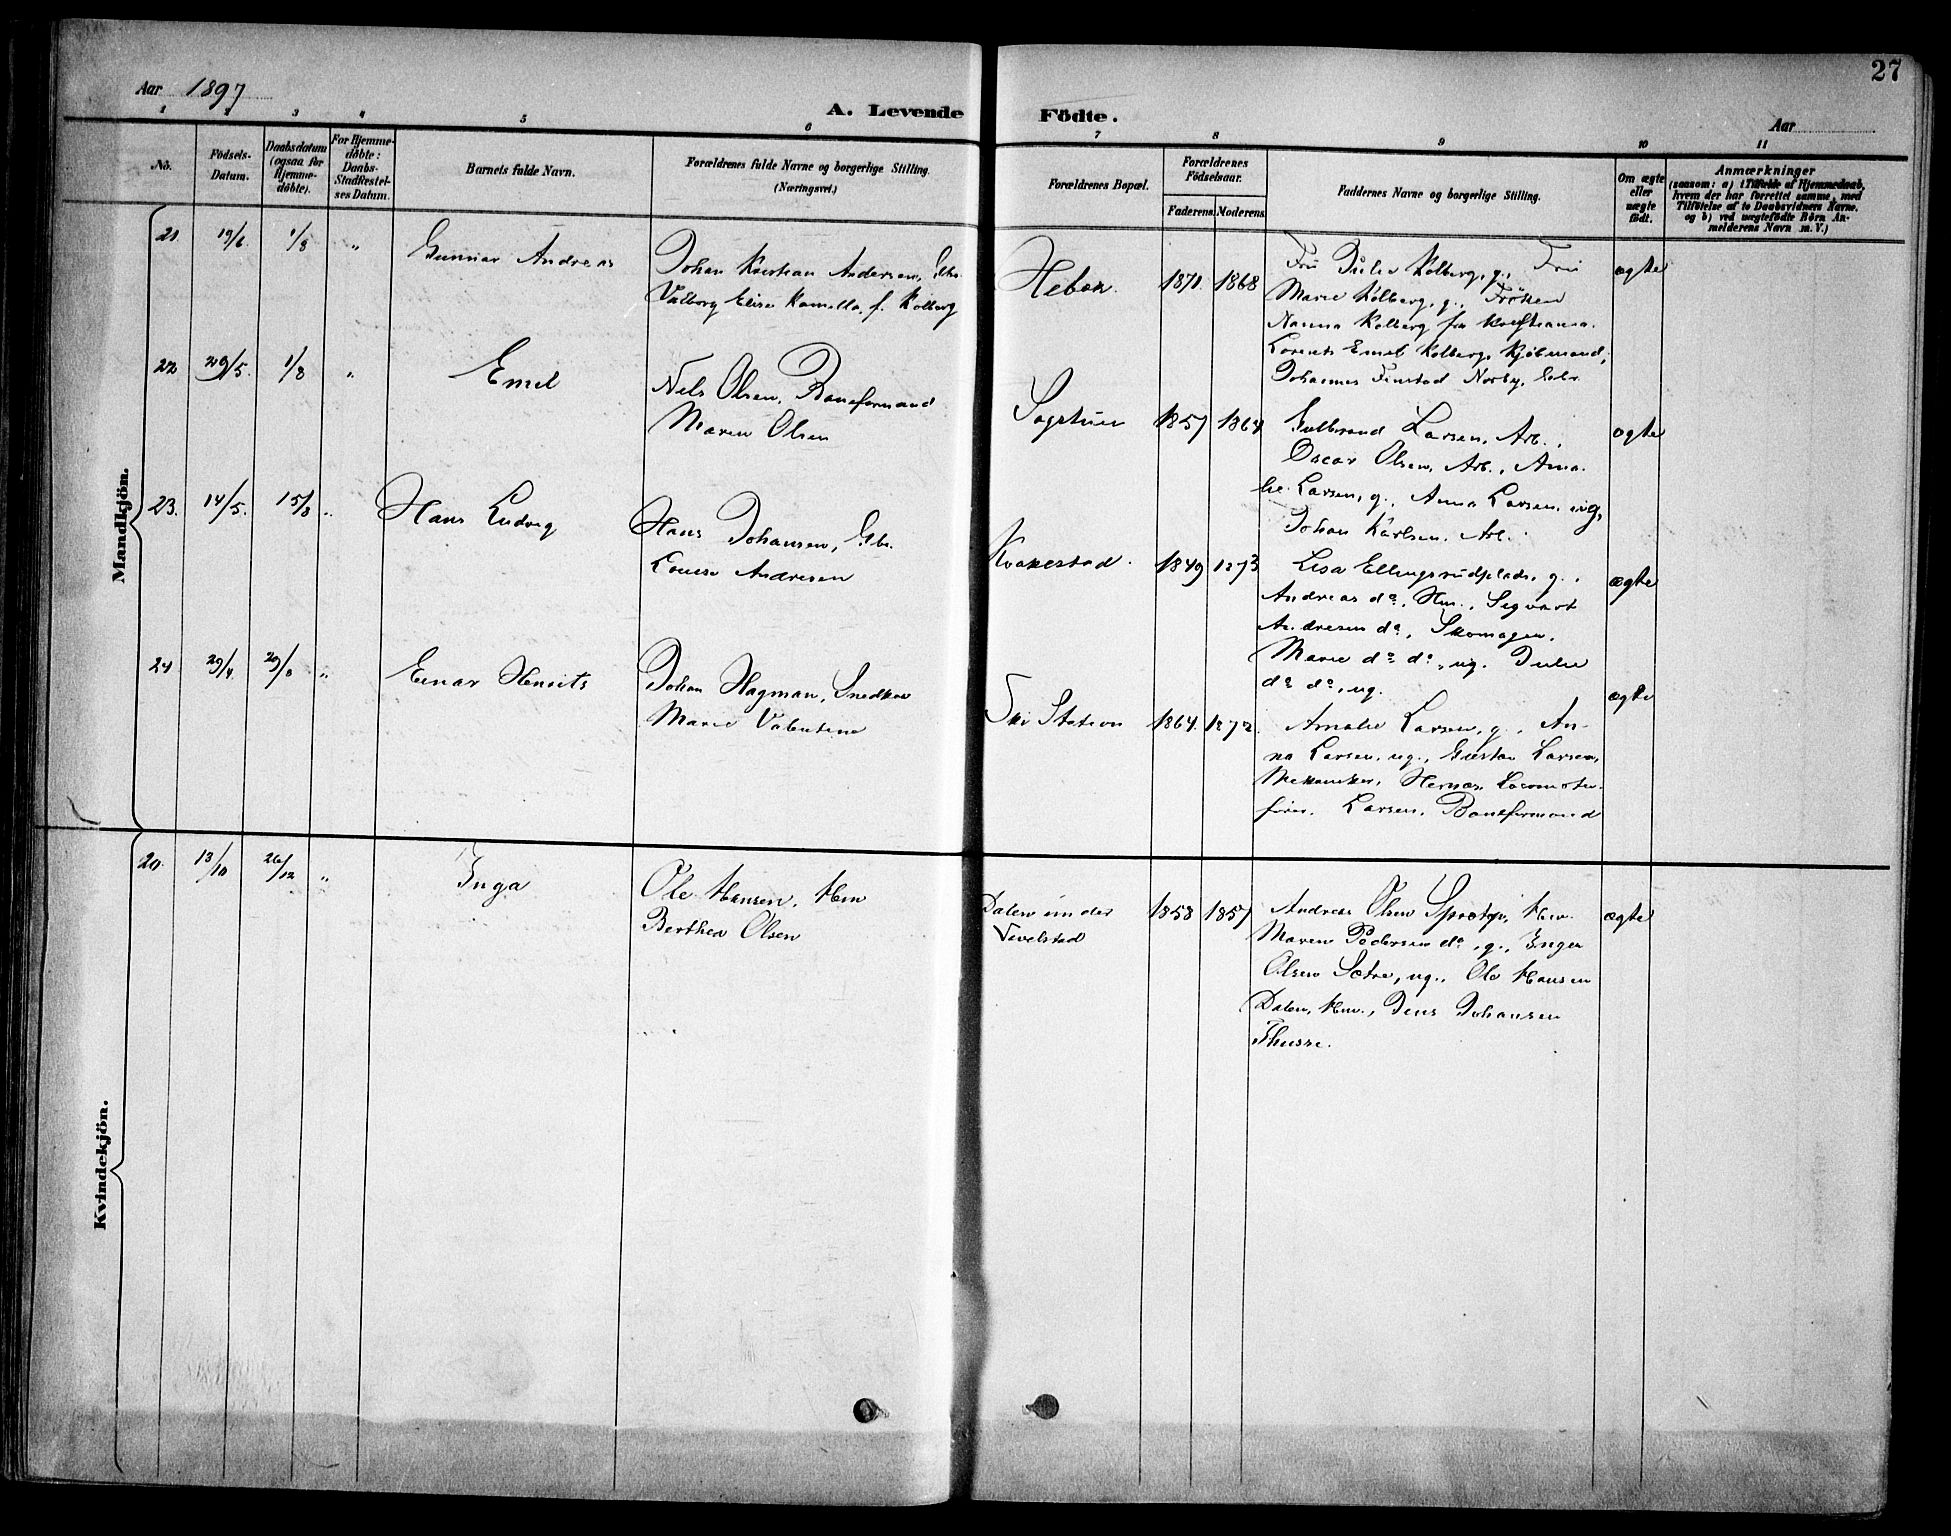 27
Aar 1897
A. Levende Födte.
Aar
1 2 3 4 5 6 7 8 9 10 11
No.
Födsels-
Datum.
Daabsdatum
(ogsaa for
Hjemme-
döbte).
For Hjemme-
döbte:
Daabs-
Stadfæstel-
ses Datum.
Barnets fulde Navn.
Forældrenes fulde Navne og borgerlige Stilling.
(Næringsvei.)
Forældrenes Bopæl.
Forældrenes
Födselsaar.
Faderens Moderens
Faddernes Navne og borgerlige Stilling.
Om ægte
eller
uægte
födt.
Anmærkninger
(saasom: a) i Tilfælde af Hjemmedaab,
hvem der har forrettet samme, med
Tilföielse af to Daabsvidners Navne,
og b) ved uægtefödte Börn An-
melderens Navn m. V.)
Mandkjön.
21. 19/6. 1/8 "
Gunnar Andreas
Johan Kristian Andersen, Gbr.
Valborg Elise Kamilla, f. Kolberg
Hebek. 1871. 1868
Fru Julie Kolberg, g., Fru
Marie Kolberg, g., Fröken
Nanna Kolberg fra Kristiania.
Lorents Emil Kolberg, Kjöbmand,
Johannes Finstad Norby, Gbr.
ægte
22 29/5. 1/8 "
Emil
Nils Olsen, Baneformand
Maren Olsen
Sagstuen 1857 1864
Gulbrand Larsen, Arb.,
Oscar Olsen, Arb., Ama-
lie Larsen, g., Anna Larsen, ug,
Johan Karlsen, Arb.
ægte
23. 14/5. 15/8 "
Hans Ludvig
Hans Johansen, Gbr.
Louise Andresen
Kvakestad. 1849 1873
Lisa Ellingsrudplads, g.,
Andreas do., Hm., Sigvart
Andresen do, Skomager,
Marie do do, ug. Julie
do do, ug.
ægte
24 29/4. 29/8 "
Einar Henrits
Johan Hagman, Snedker
Marie Valentine
Ski Station 1864. 1872.
Amalie Larsen, g., An-
na Larsen, ug., Gustav Larsen,
Mekaniker, Locomotiv-
förer. Larsen, Baneformand
ægte
Kvindekjön.
20. 13/10 26/12 "
Inga
Ole Hansen, Hm
Berthea Olsen
Dalen under
Vevelstad
1858 1857
Andreas Olsen Hm.
Maren Pedersen do, g., Inger
Olsen Sætre, ug., Ole Hansen
Dalen, Hm., Jens Johansen
Thusse.
ægte